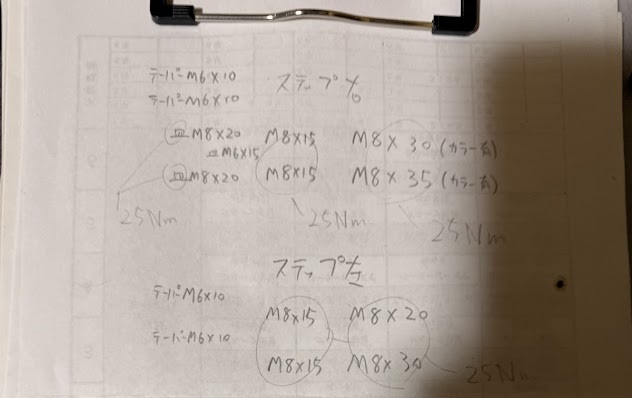 テーパーM6×10 ステップ右
テーパーM6×10
皿M8×20 M8×15 M8×30(カラー有)
皿M6×15
皿M8×20 M8×15 M8×35(カラー有)
25Nm 25Nm 25Nm
ステップ左
テーパーM6×10 M8×15 M8×20
テーパーM6×10 M8×15 M8×30
25Nm